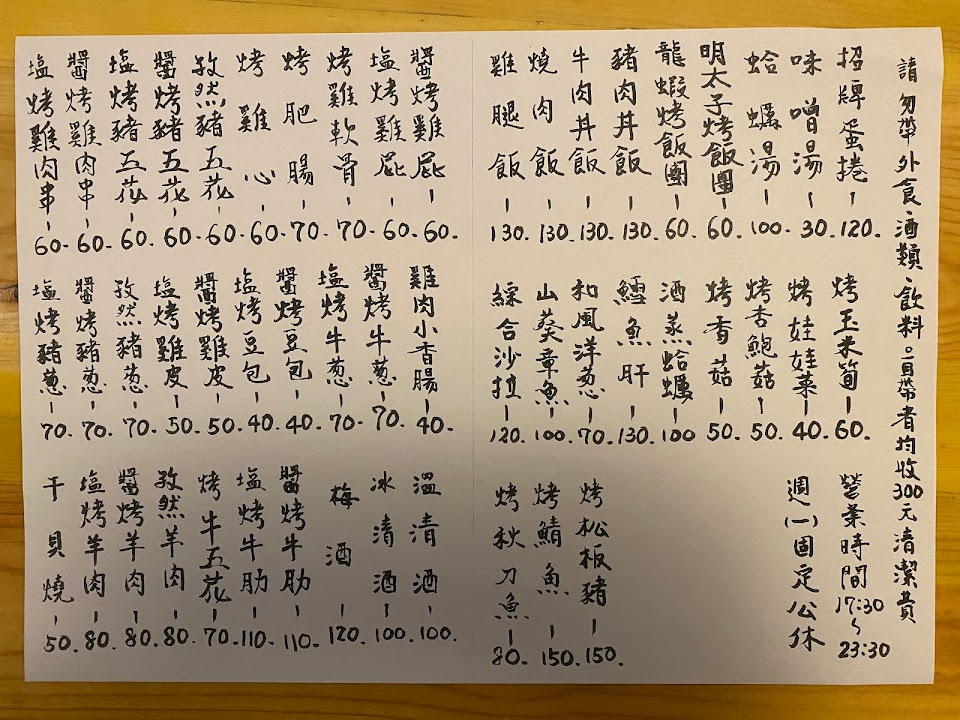 請勿帶外食、酒類、飲料。自帶者均收300元清潔費
招牌蛋捲-120.
味噌湯-30.
蛤蠣湯-100.
明太子烤飯團-60.
龍蝦烤飯團-60.
豬肉丼飯-130.
牛肉丼飯-130.
燒肉飯-130.
雞腿飯-130.
烤玉米筍-60.
烤娃娃菜-40.
烤杏鮑菇-50.
烤香菇-50.
酒蒸蛤蠣-100
鱈魚肝-130.
和風洋葱-70.
山葵章魚-100.
綜合沙拉-120.
營業時間17:30~23:30
週(一)固定公休
烤松板豬-150.
烤鯖魚-150.
烤秋刀魚-80.
醬烤雞屁-60.
塩烤雞屁-60.
烤雞軟骨-70.
烤肥腸-70.
烤雞心-60.
孜然豬五花-60.
醬烤豬五花-60.
塩烤豬五花-60.
醬烤雞肉串-60.
塩烤雞肉串-60.
雞肉小香腸-40.
醬烤牛葱-70.
塩烤牛葱-70.
醬烤豆包-40.
塩烤豆包-40.
醬烤雞皮-50.
塩烤雞皮-50.
孜然豬葱-70.
醬烤豬葱-70.
塩烤豬葱-70.
溫清酒-100.
冰清酒-100.
梅酒-120.
醬烤牛肋-110.
塩烤牛肋-110.
烤牛五花-70.
孜然羊肉-80.
醬烤羊肉-80.
塩烤羊肉-80.
干貝燒-50.